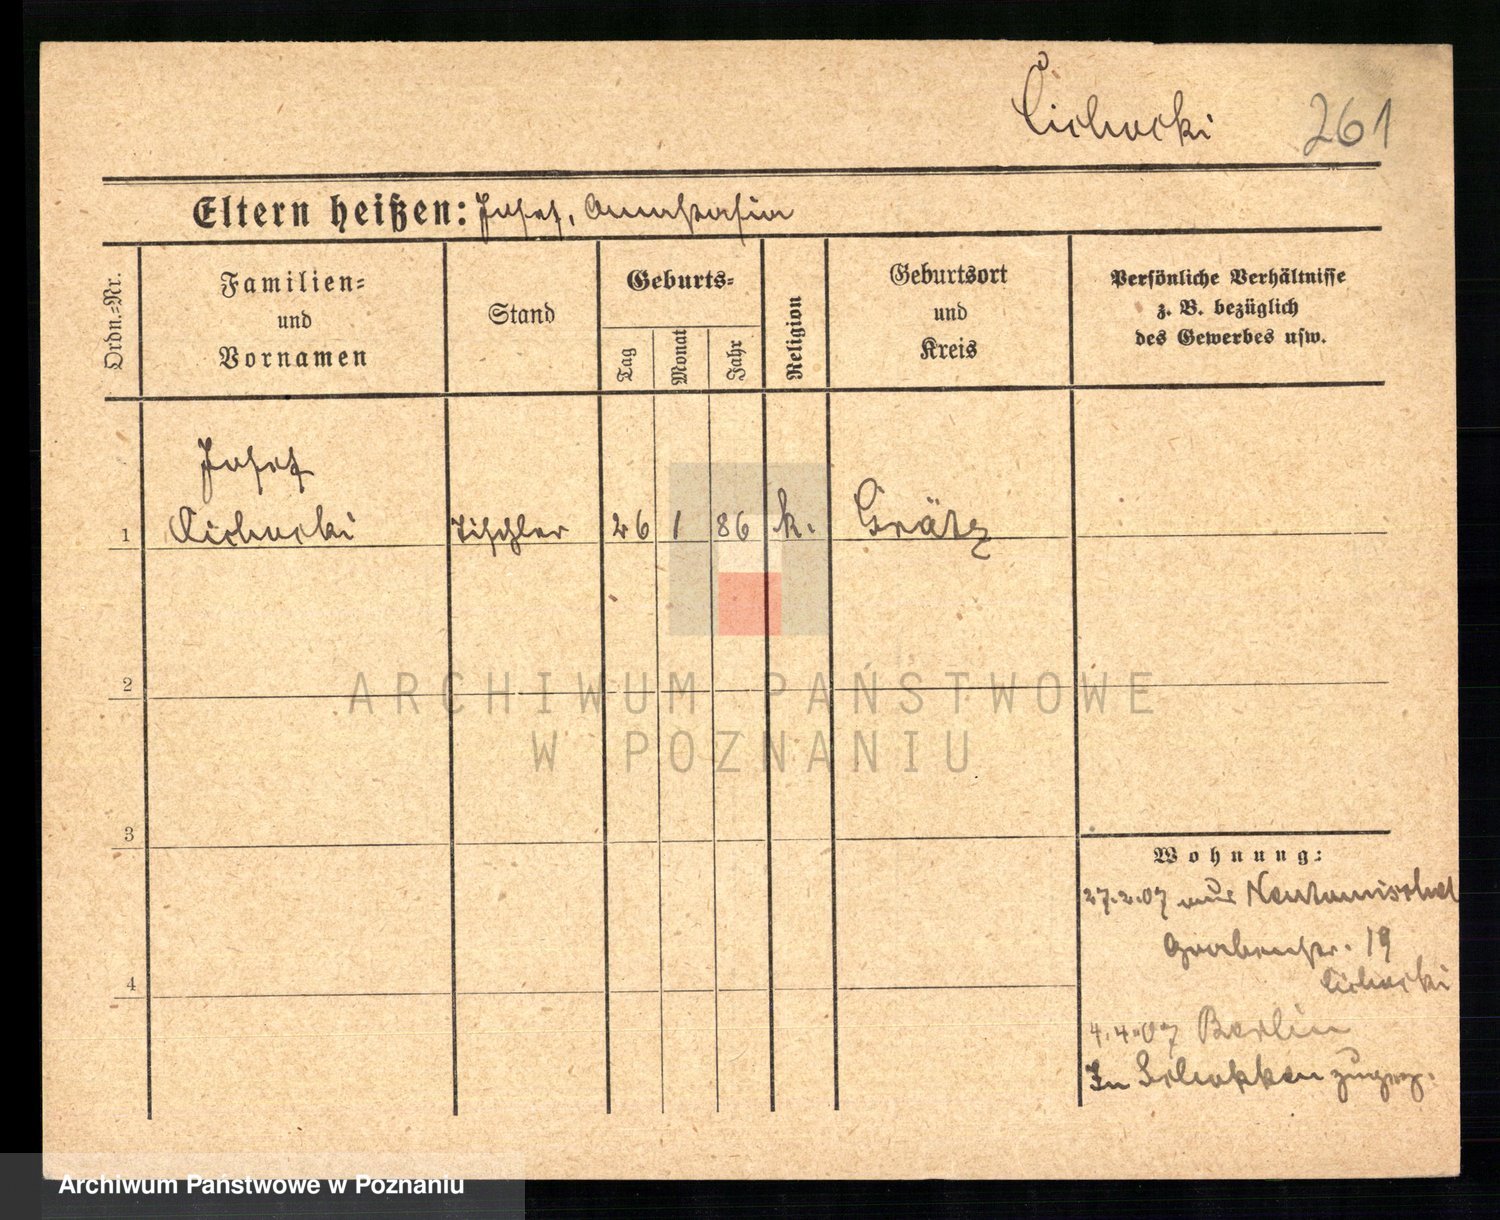 Cichocki 261
Eltern heißen: Josef, Annastasia
Ordn.-Nr.
Familien-
und
Vornamen
Stand
Geburts-
Tag
Monat
Jahr
Religion
Geburtsort
und
Kreis
Persönliche Verhältnisse
z. B. bezüglich
des Gewerbes usw.
Josef
1 Cichocki Tischler 26 1 86 k. Grätz
2
ARCHIWUM PAŃSTWOWE
W POZNANIU
3
Wohnung:
27.2.07 aus Neutomischel
Grabenstr. 19
Cichocki
4
4.4.07 Berlin
In Schokken
Archiwum Państwowe w Poznaniu